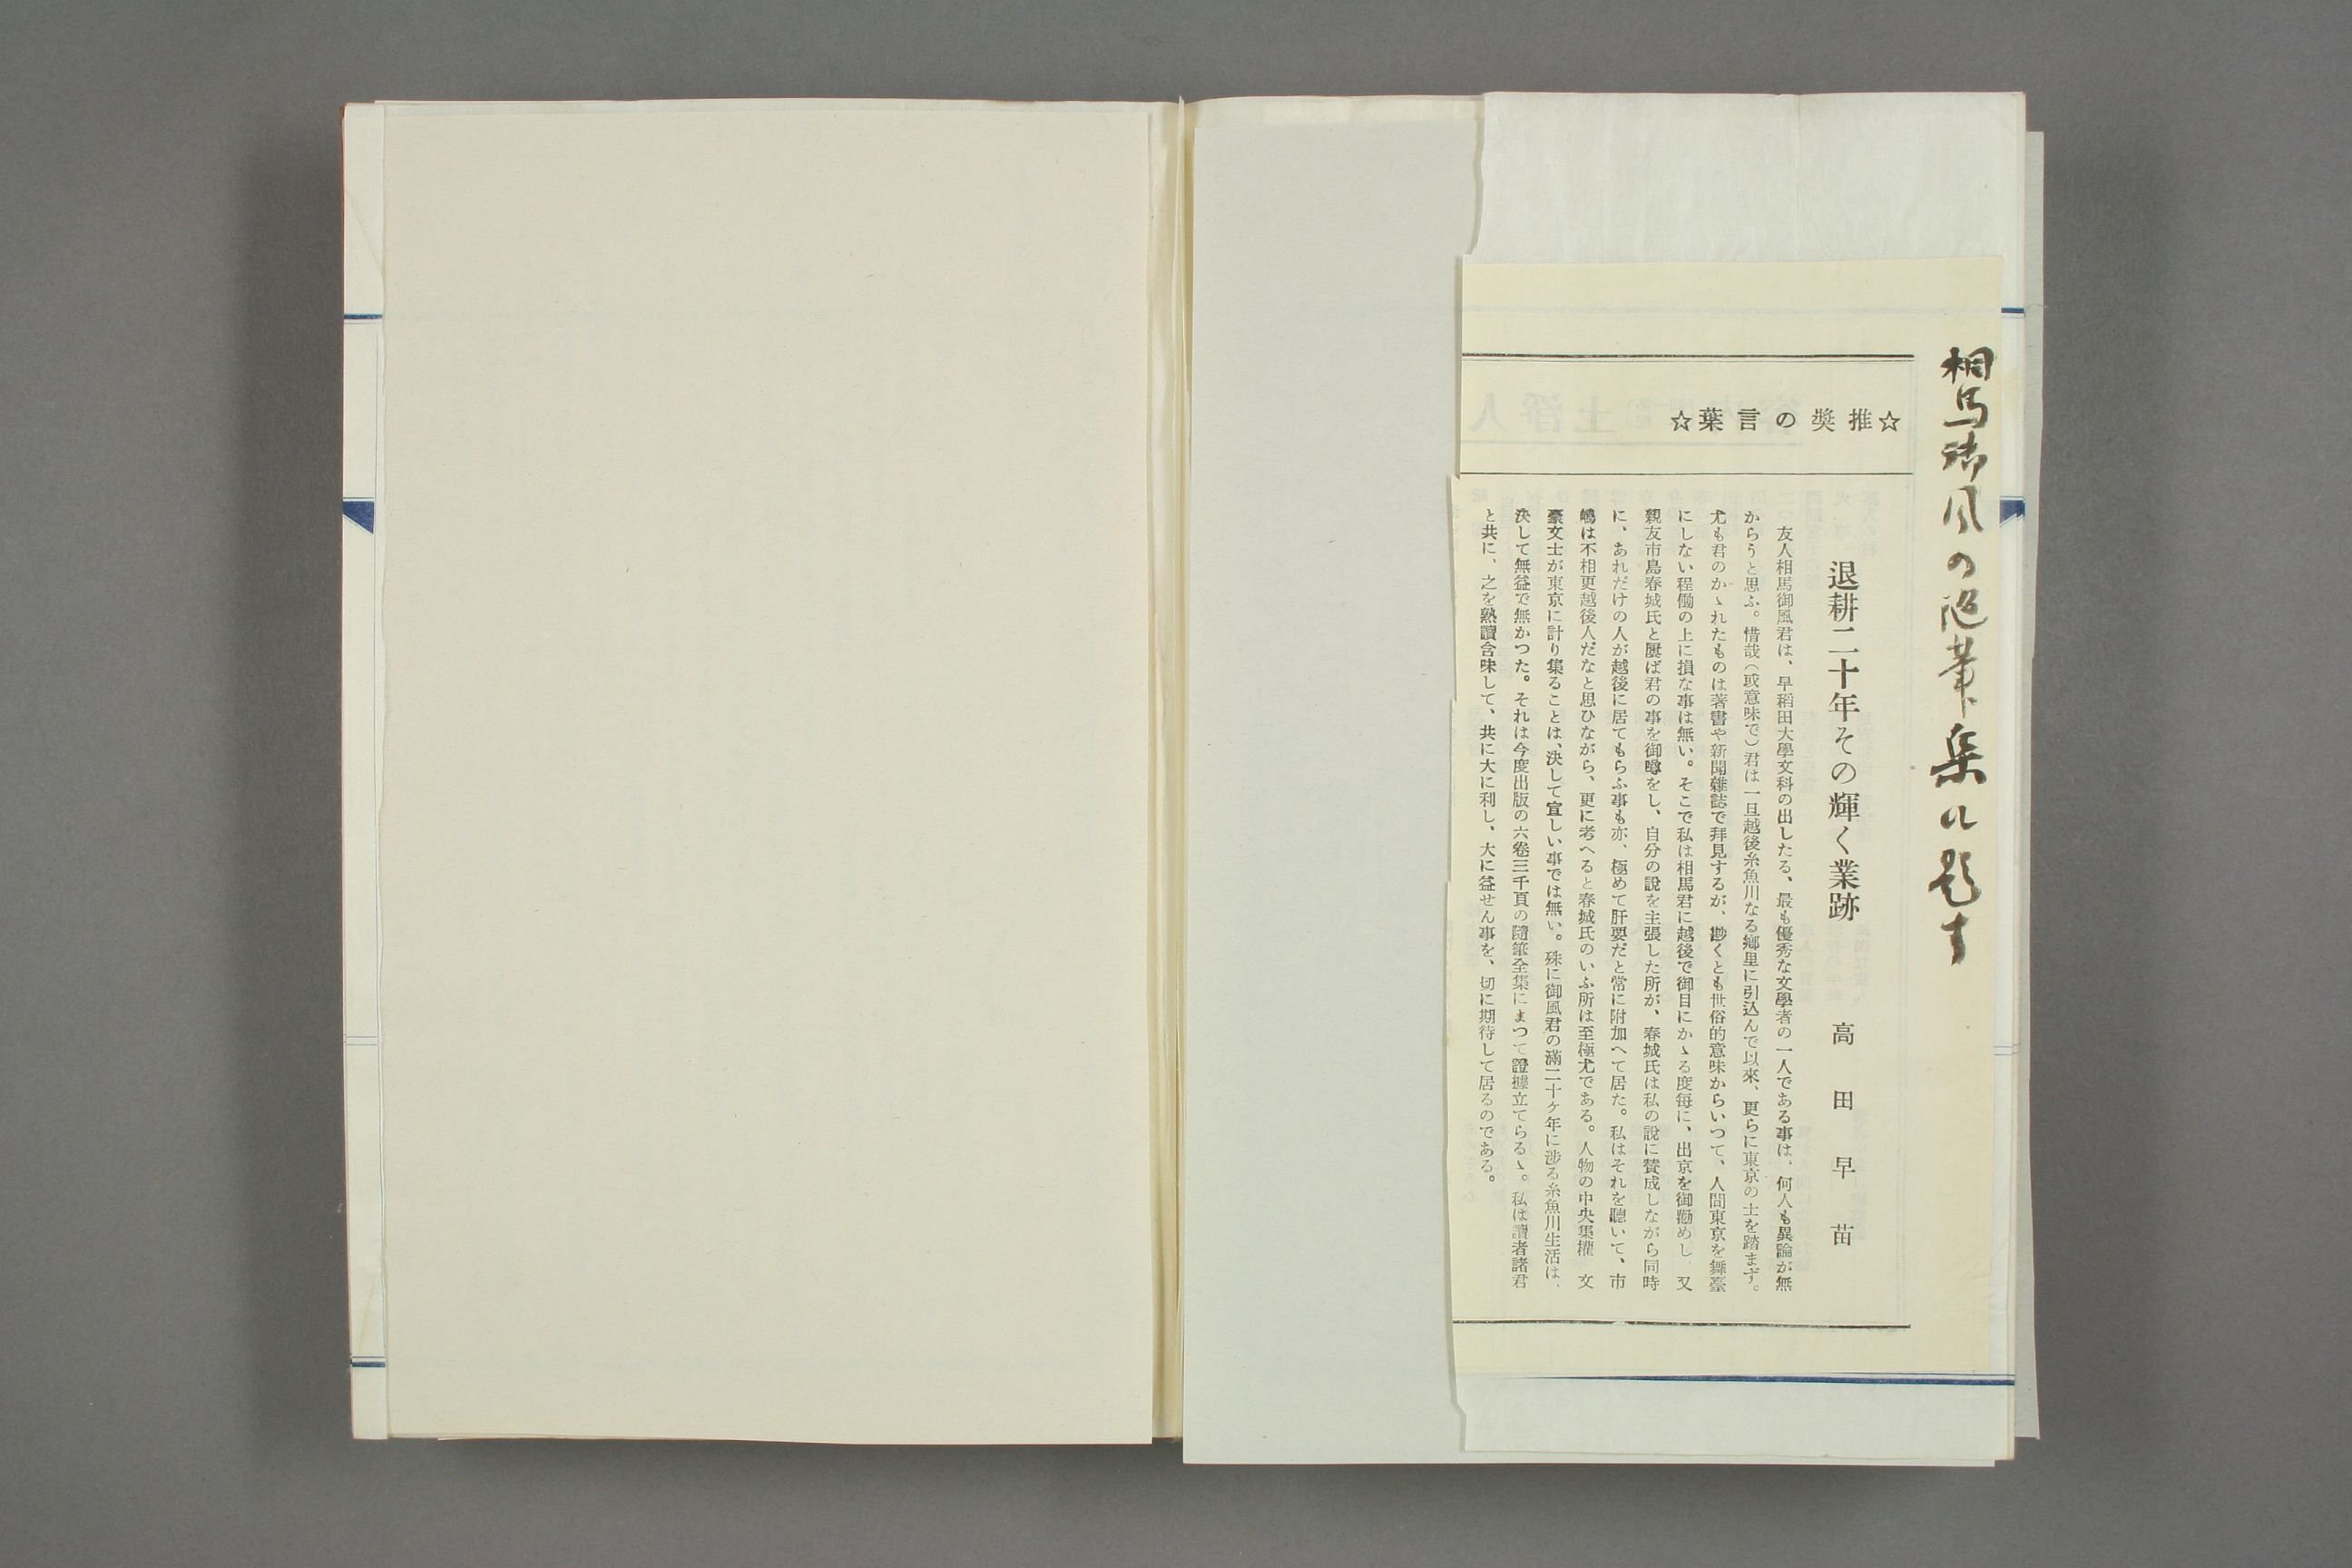 相馬御風の随筆集の題言
☆推奬の言葉☆
退耕二十年その輝く業跡
高田早苗
友人相馬御風君は、早稻田大學文科の出したる、最も優秀な文學者の一人である事は、何人も異論が無
からうと思ふ。惜哉(或意味で)君は一旦越後糸魚川なる鄕里に引込んで以來、更らに東京の土を踏まず。
尤も君のかゝれたものは著書や新聞雜誌で拜見するが、尠くとも世俗的意味からいつて、人間東京を舞臺
にしない程働の上に損な事は無い。そこで私は相馬君に越後で御目にかゝる度每に、出京を御勸めし、又
親友市島春城氏と屢ば君の事を御噂をし、自分の說を主張した所が、春城氏は私の說に賛成しながら同時
に、あれだけの人が越後に居てもらふ事も亦、極めて肝要だと常に附加へて居た。私はそれを聽いて、市
嶋は不相更越後人だなと思ひながら、更に考へると春城氏のいふ所は至極尤である。人物の中央集權、文
豪文士が東京に計り集ることは、決して宜しい事では無い。殊に御風君の滿二十ケ年に涉る糸魚川生活は、
決して無益で無かつた。それは今度出版の六卷三千頁の隨筆全集によつて證據立てらるゝ。私は讀者諸君
と共に、之を熟讀含味して、共に大に利し、大に益せん事を、切に期待して居るのである。